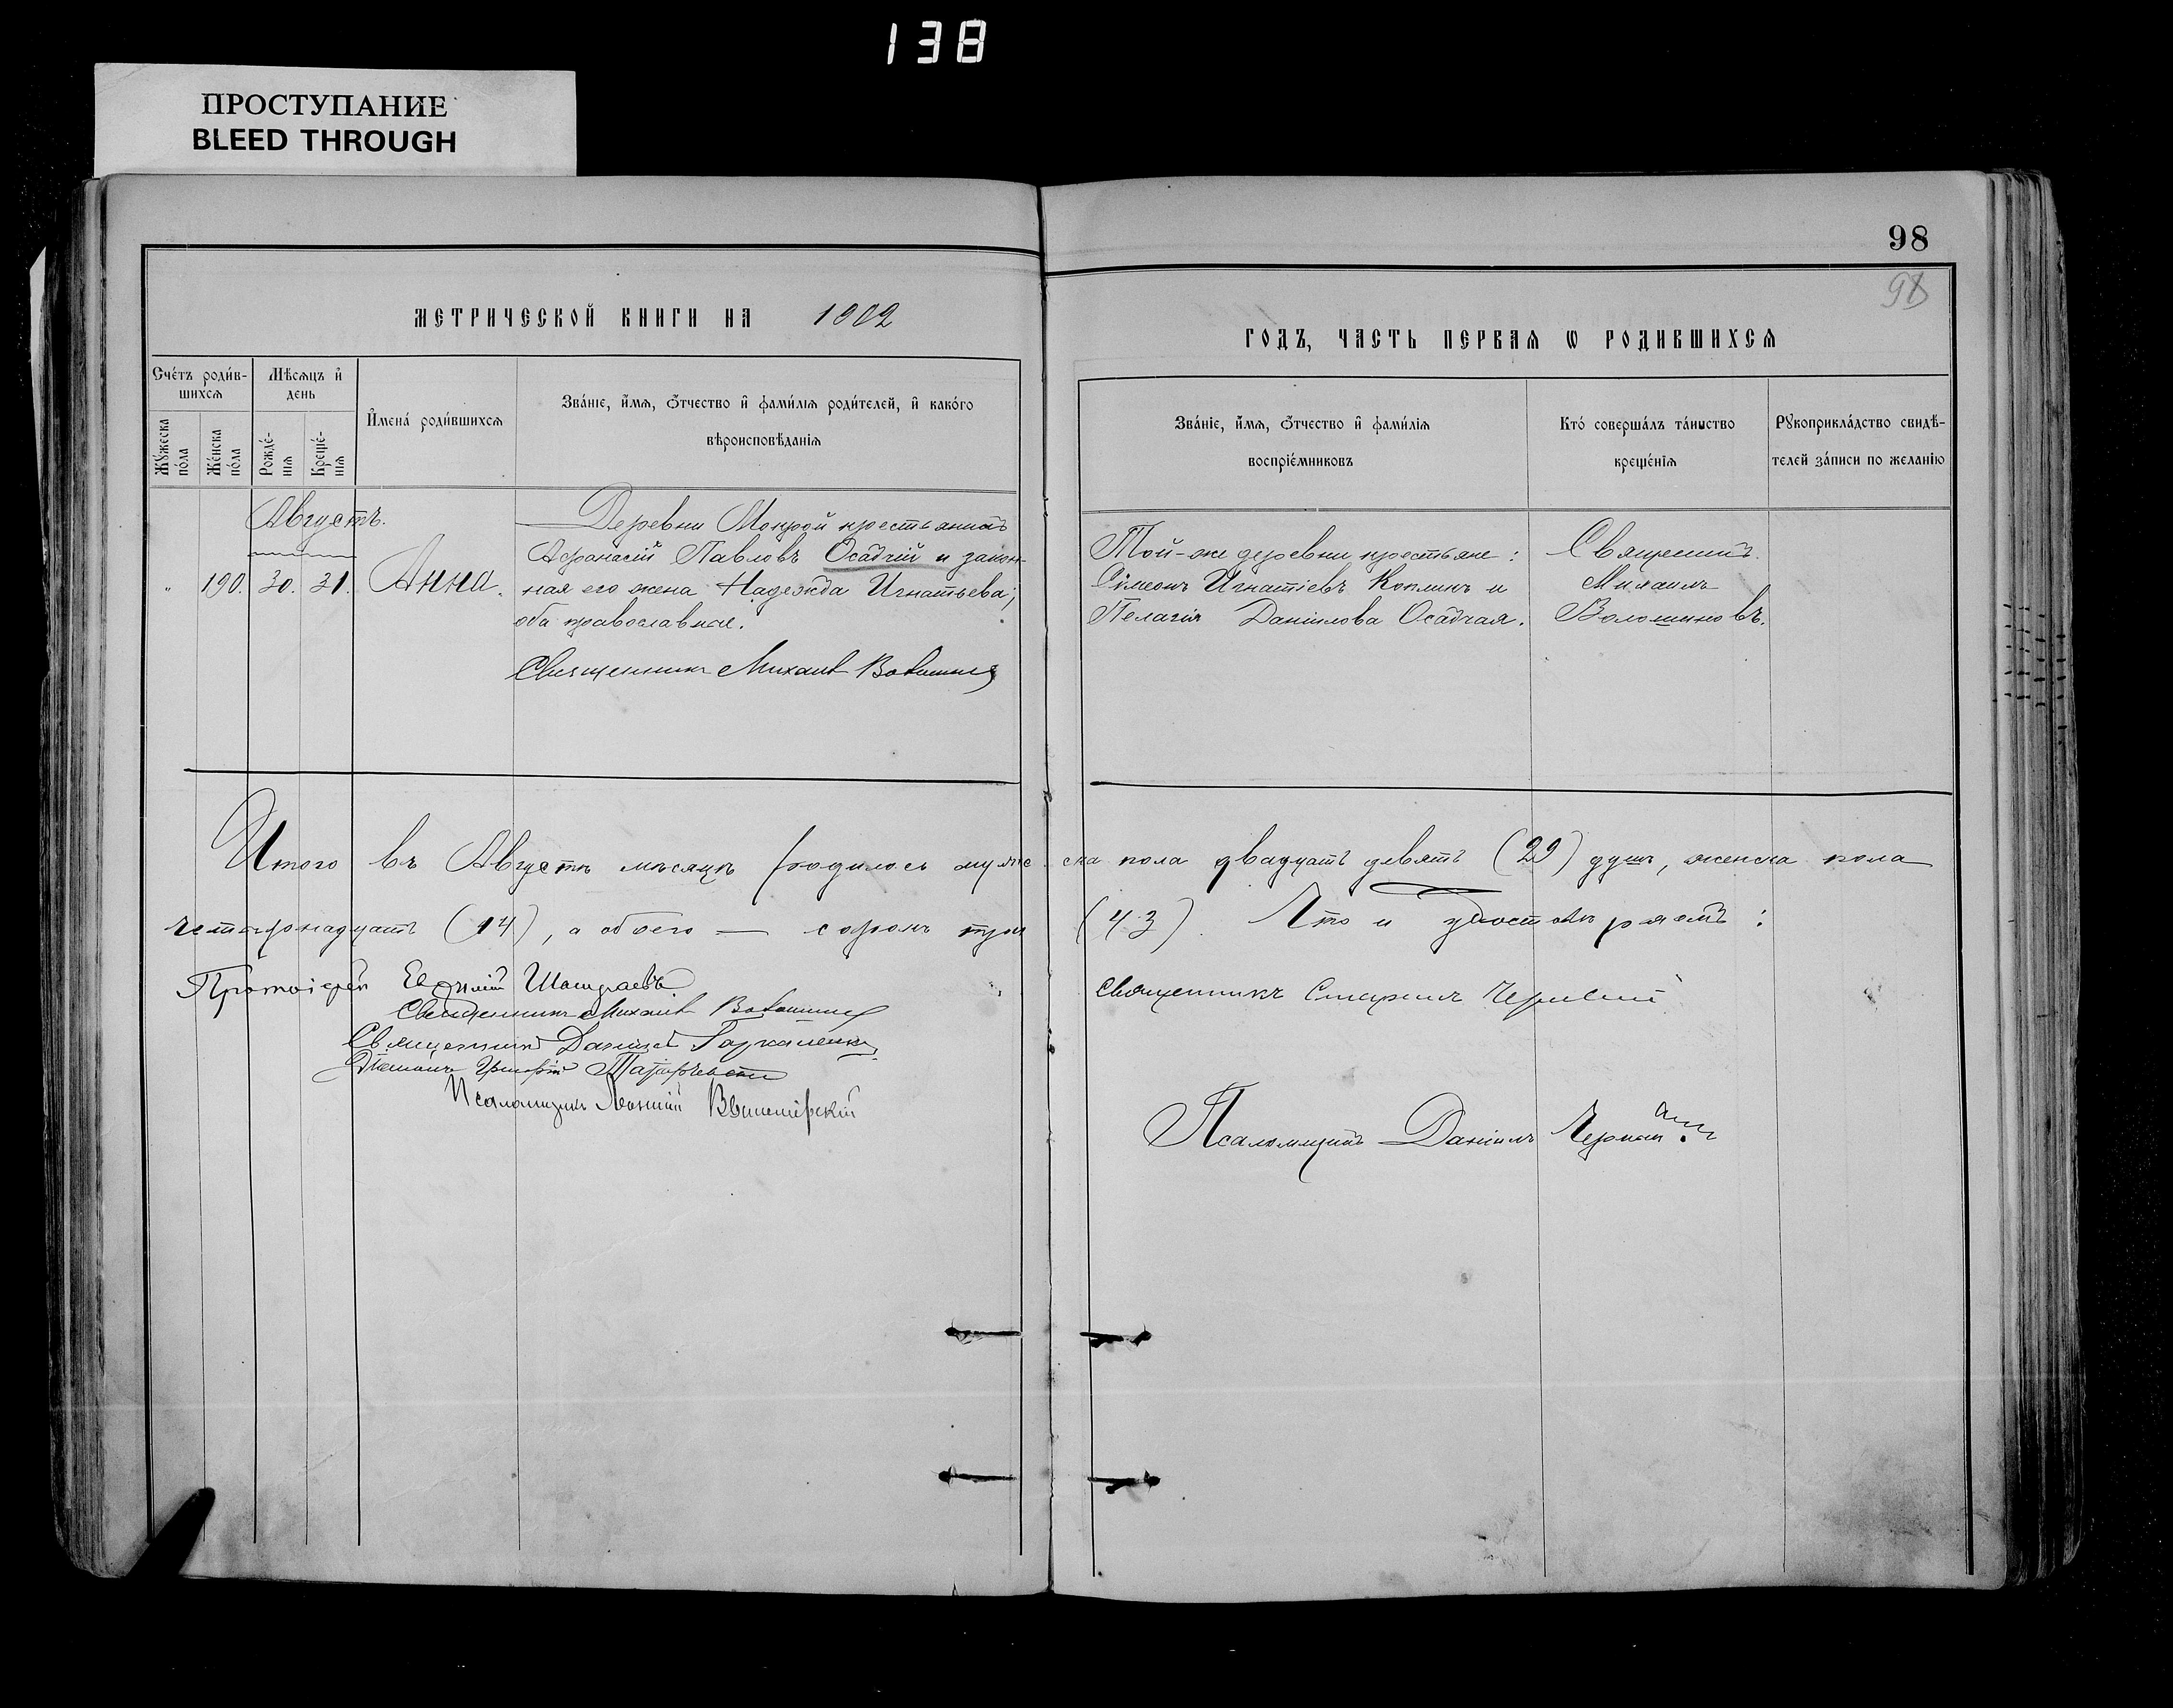 138
ПРОСТУПАНИЕ
BLEED THROUGH
98
98
МЕТРИЧЕСКОЙ КНИГИ НА 1902
ГОДЪ, ЧАСТЬ ПЕРВАѦ Ѡ РОДИВШИХСѦ
Счетъ родив-
шихсѧ
Мужеска
пола
Женска
пола
Мѣсѧцъ и
день
Рожде-
ніѧ
Креще-
ніѧ
Имена родившихсѧ
Званіе, имѧ, ѻтчество и фамиліѧ родителей, и какого
вѣроисповѣданіѧ
Званіе, имѧ, ѻтчество и фамиліѧ
воспріемниковъ
Кто совершалъ таинство
крещеніѧ
Рукоприкладство свидѣ-
телей записи по желанію
Августъ.
" 190. 30. 31. Анна.
Деревни Мокрой крестьянинъ
Афанасій Павловъ Осадчій и закон-
ная его жена Надежда Игнатьева;
оба православные.
Священникъ Михаилъ Волошиновъ
Той-же деревни крестьяне:
Симеонъ Игнатіевъ и
Пелагія Даніилова Осадчая.
Священникъ
Михаилъ
Волошиновъ.
Итого въ Августѣ мѣсяцѣ родилось мужеска пола двадцать девять (29) душъ, женска пола
четырнадцать (14), а обоего — сорокъ три (43). Что и удостовѣряемъ:
Протоіерей Евфимій
Священникъ Михаилъ Волошиновъ
Священникъ Даніилъ
Діаконъ Григорій
Псаломщикъ
Священникъ
Псаломщикъ Даніилъ